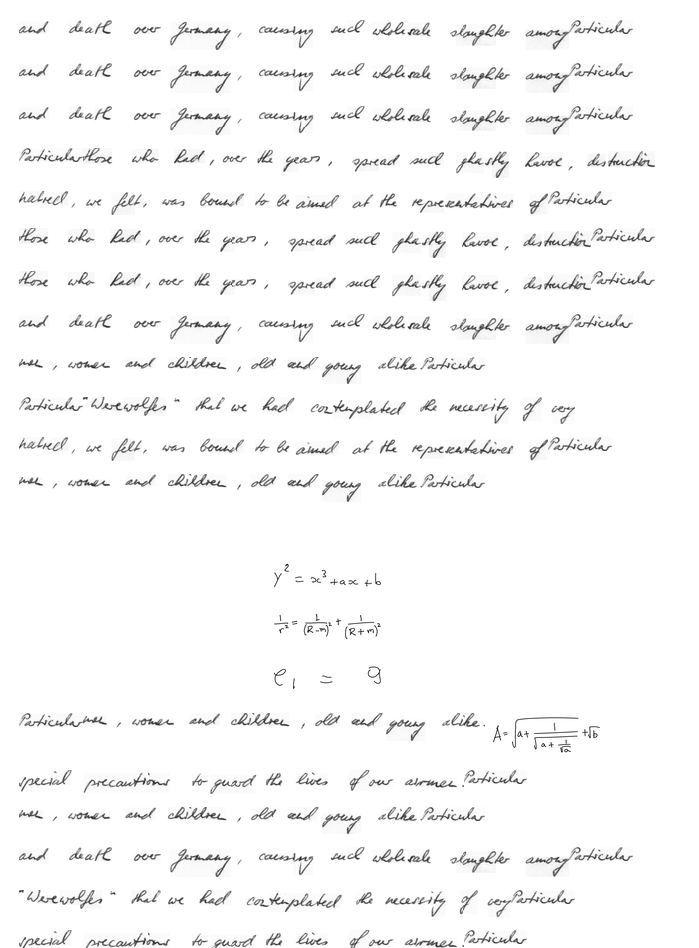 and death over Germany, causing such wholesale slaughter among Particular
and death over Germany, causing such wholesale slaughter among Particular
and death over Germany, causing such wholesale slaughter among Particular
Particular those who had, over the years, spread such ghastly havoc, destruction
hatred, we felt, was bound to be aimed at the representatives of Particular
those who had, over the years, spread such ghastly havoc, destruction Particular
those who had, over the years, spread such ghastly havoc, destruction Particular
and death over Germany, causing such wholesale slaughter among Particular
men, women and children, old and young alike Particular
Particular "Werewolfes" that we had contemplated the necessity of very
hatred, we felt, was bound to be aimed at the representatives of Particular
men, women and children, old and young alike Particular
y^2 = x^3 + ax + b
\frac{1}{r^2} = \frac{1}{(R-m)^2} + \frac{1}{(R+m)^2}
e_1 = g
Particular men, women and children, old and young alike. A = \sqrt{a + \frac{1}{\sqrt{a + \frac{1}{\sqrt{a}}}}} + \sqrt{b}
special precautions to guard the lives of our airmen. Particular
men, women and children, old and young alike Particular
and death over Germany, causing such wholesale slaughter among Particular
"Werewolfes" that we had contemplated the necessity of very Particular
special precautions to guard the lives of our airmen. Particular